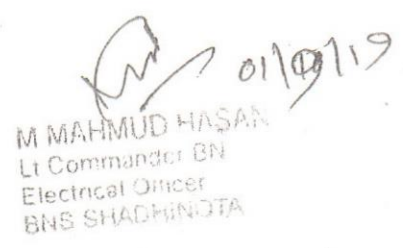 01/10/19
M MAHMUD HASAN
Lt Commander BN
Electrical Officer
BNS SHADHINOTA